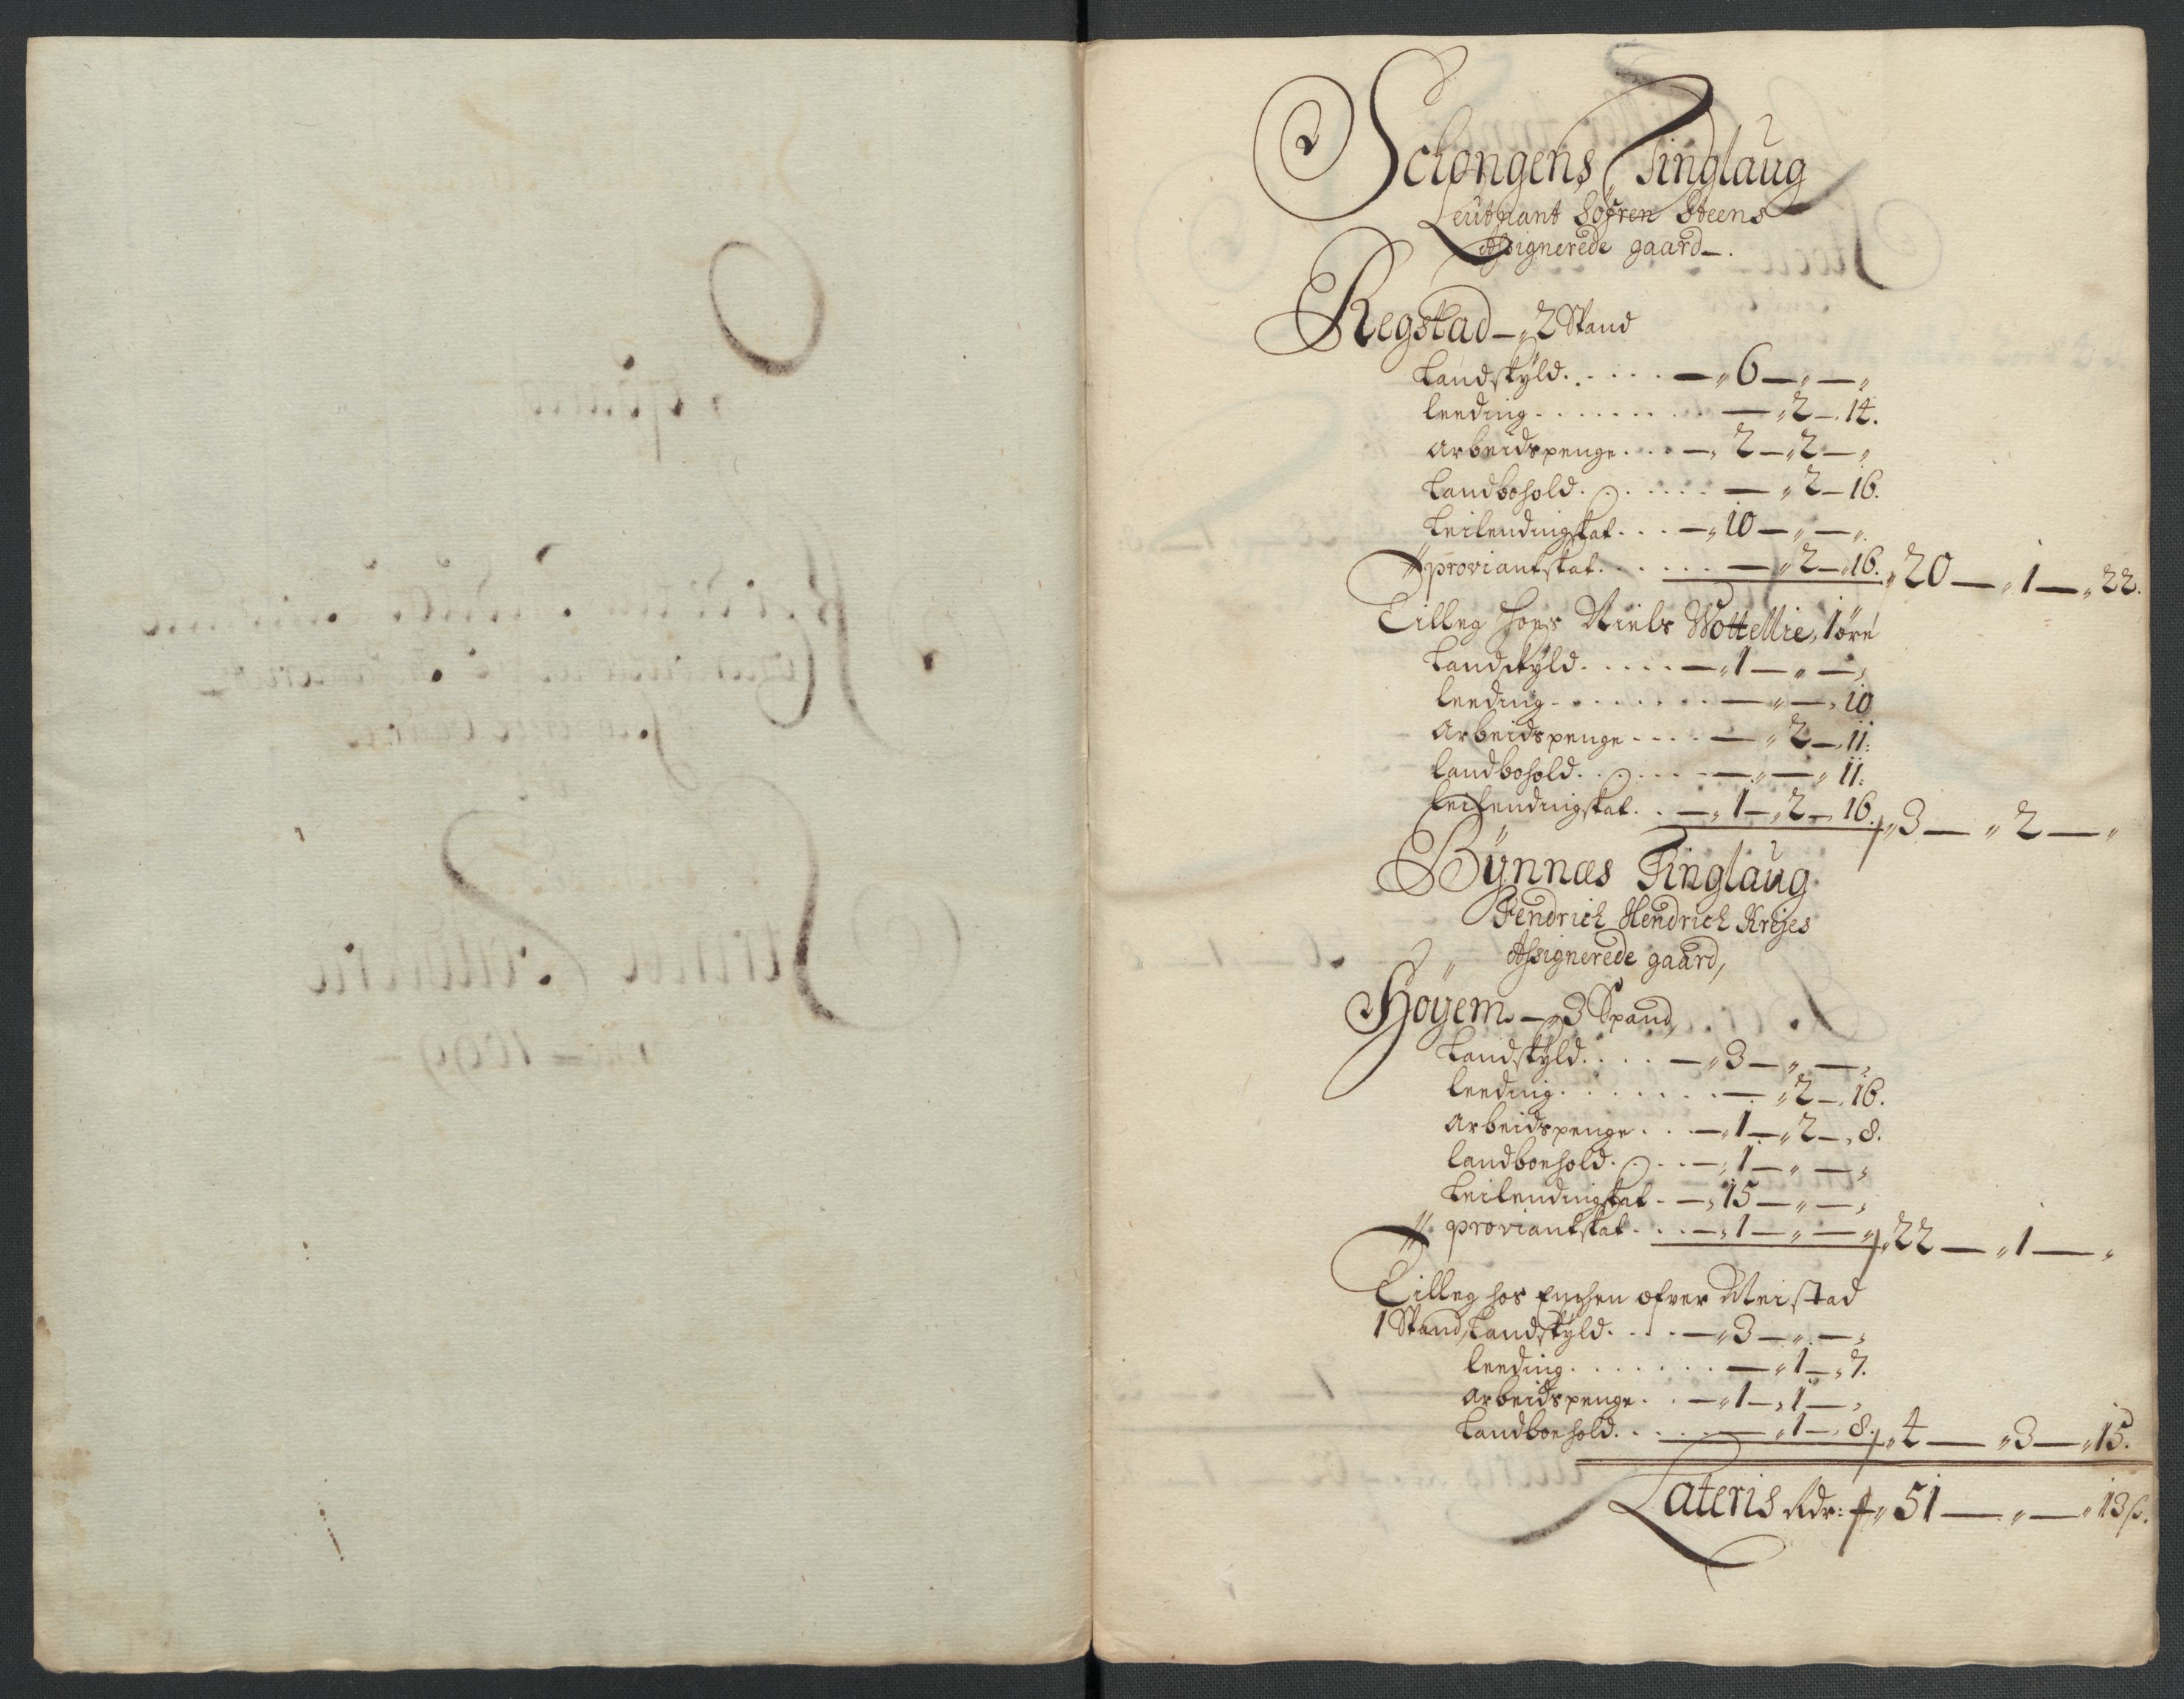 Schongens Tinglaug
Leutnant Søfren Steens
Assignerede gaard—.
Regstad — „ 2 Spand
Landskyld. . . . . . — „ 6 — „ — „
leeding . . . . . . . . — „ 2 — 14.
arbeidspenge . . . — „ 2 — „ 2 — „
Landbohold. . . . . . — „ 2 — 16.
Leilendingskat . . . — „ 10 — „ — „
proviantskat. . . . . . — „ 2 — „ 16. „ 20 — „ 1 — „ 22.
Tilleg hoes Niels Wottellie, 1 øre
Landskyld. . . . . — „ 1 — „ — „
leeding . . . . . . . — „ — „ 10
Arbeidspenge . . . . — „ 2 — „ 11:
landbohold. . . . . . — „ — „ 11:
leilendingskat. . — „ 1 — „ 2 — „ 16. „ 3 — „ 2 — „
Bÿnnæs Tinglaug
Fendrich Hendrich Krejes
Assignerede gaard,
Høyem — „ 3 Spand,
Landskyld. . . . — „ 3 — „ — „
leeding . . . . . . . — „ 2 — „ 16.
Arbeidspenge . . . — „ 1 — „ 2 — „ 8.
landboehold. . . . — „ 1 — „ — „
Leilendingskat - — „ 15 — „ — „
proviantskat . . . — „ 1 — „ — „ 22 — „ 1 — „
Tilleg hos Enchen øfver Meistad
1 Spand, Landskyld. . . . — „ 3 — „ — „
leeding . . . . . . . — „ 1 — „ 7.
arbeidspenge . . — „ 1 — „ 1 — „
Landboehold. . . . . — „ 1 — „ 8. „ 4 — „ 3 — „ 15.
Lateris Rdr: „ 51 — „ — „ 13 ß.